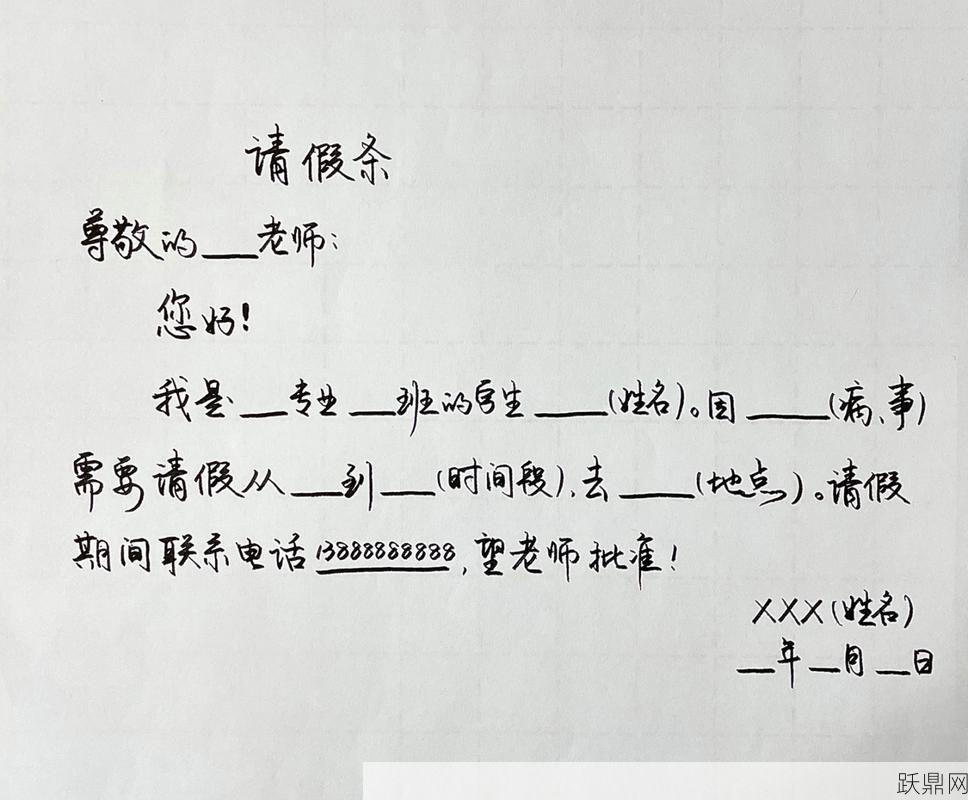 请假条
尊敬的___老师:
您好!
我是___专业___班的学生____(姓名)。因____(病、事)
需要请假从___到___(时间段),去____(地点)。请假
期间联系电话13888888888,望老师批准!
XXX(姓名)
__年__月__日
跃鼎网